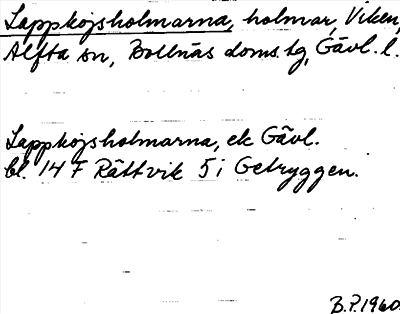 Lappkojsholmarna, holmar, Viken,
Alfta sn, Bollnäs doms.tg, Gävl. l.
Lappkojsholmarna, ek Gävl.
bl. 14 F Rättvik 5 i Getryggen.
B.P. 1960.